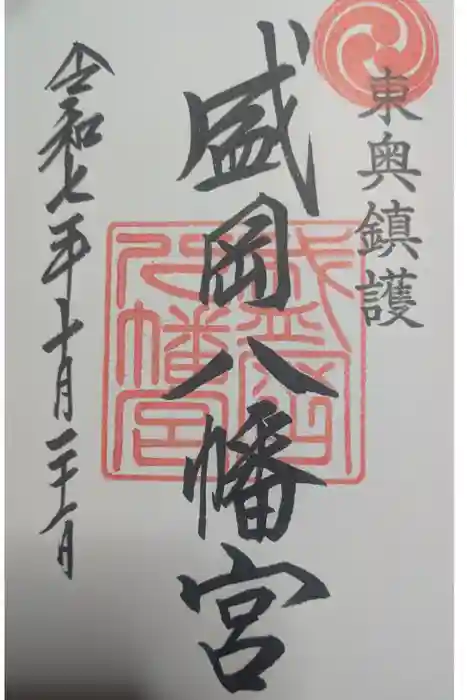 東奥鎮護
盛岡八幡宮
盛岡八幡宮
令和七年十月二十一日